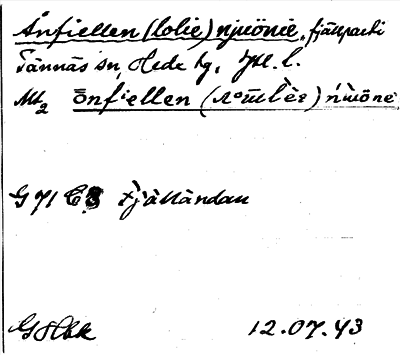 Ånfiellen (lolie) njuönie, fjällparti
Tännäs sn, Hede tg, Jtl. l.
Mt₂ ōnfiellen (
G 71 C fjälländan
12.07.43